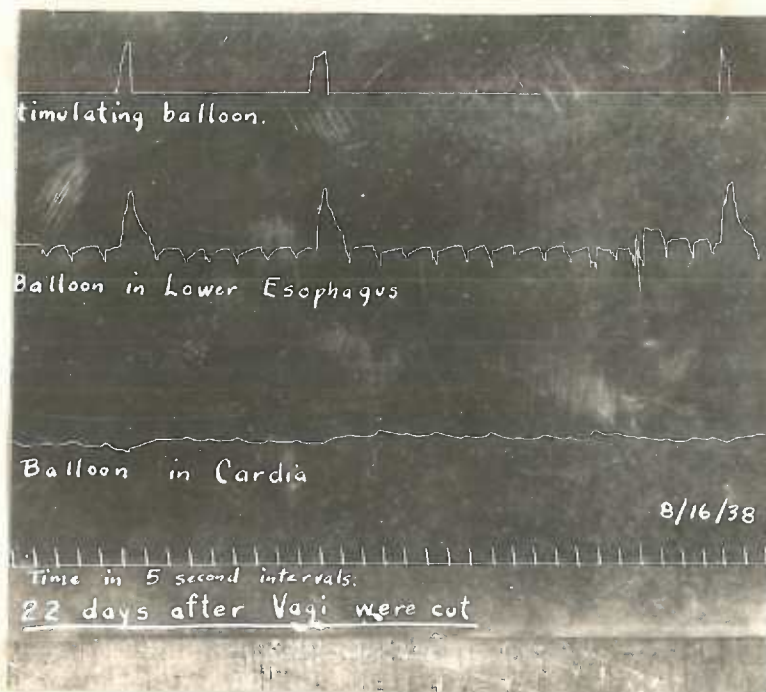 timulating balloon.
Balloon in Lower Esophagus
Balloon in Cardia
8/16/38
Time in 5 second intervals.
22 days after Vagi were cut